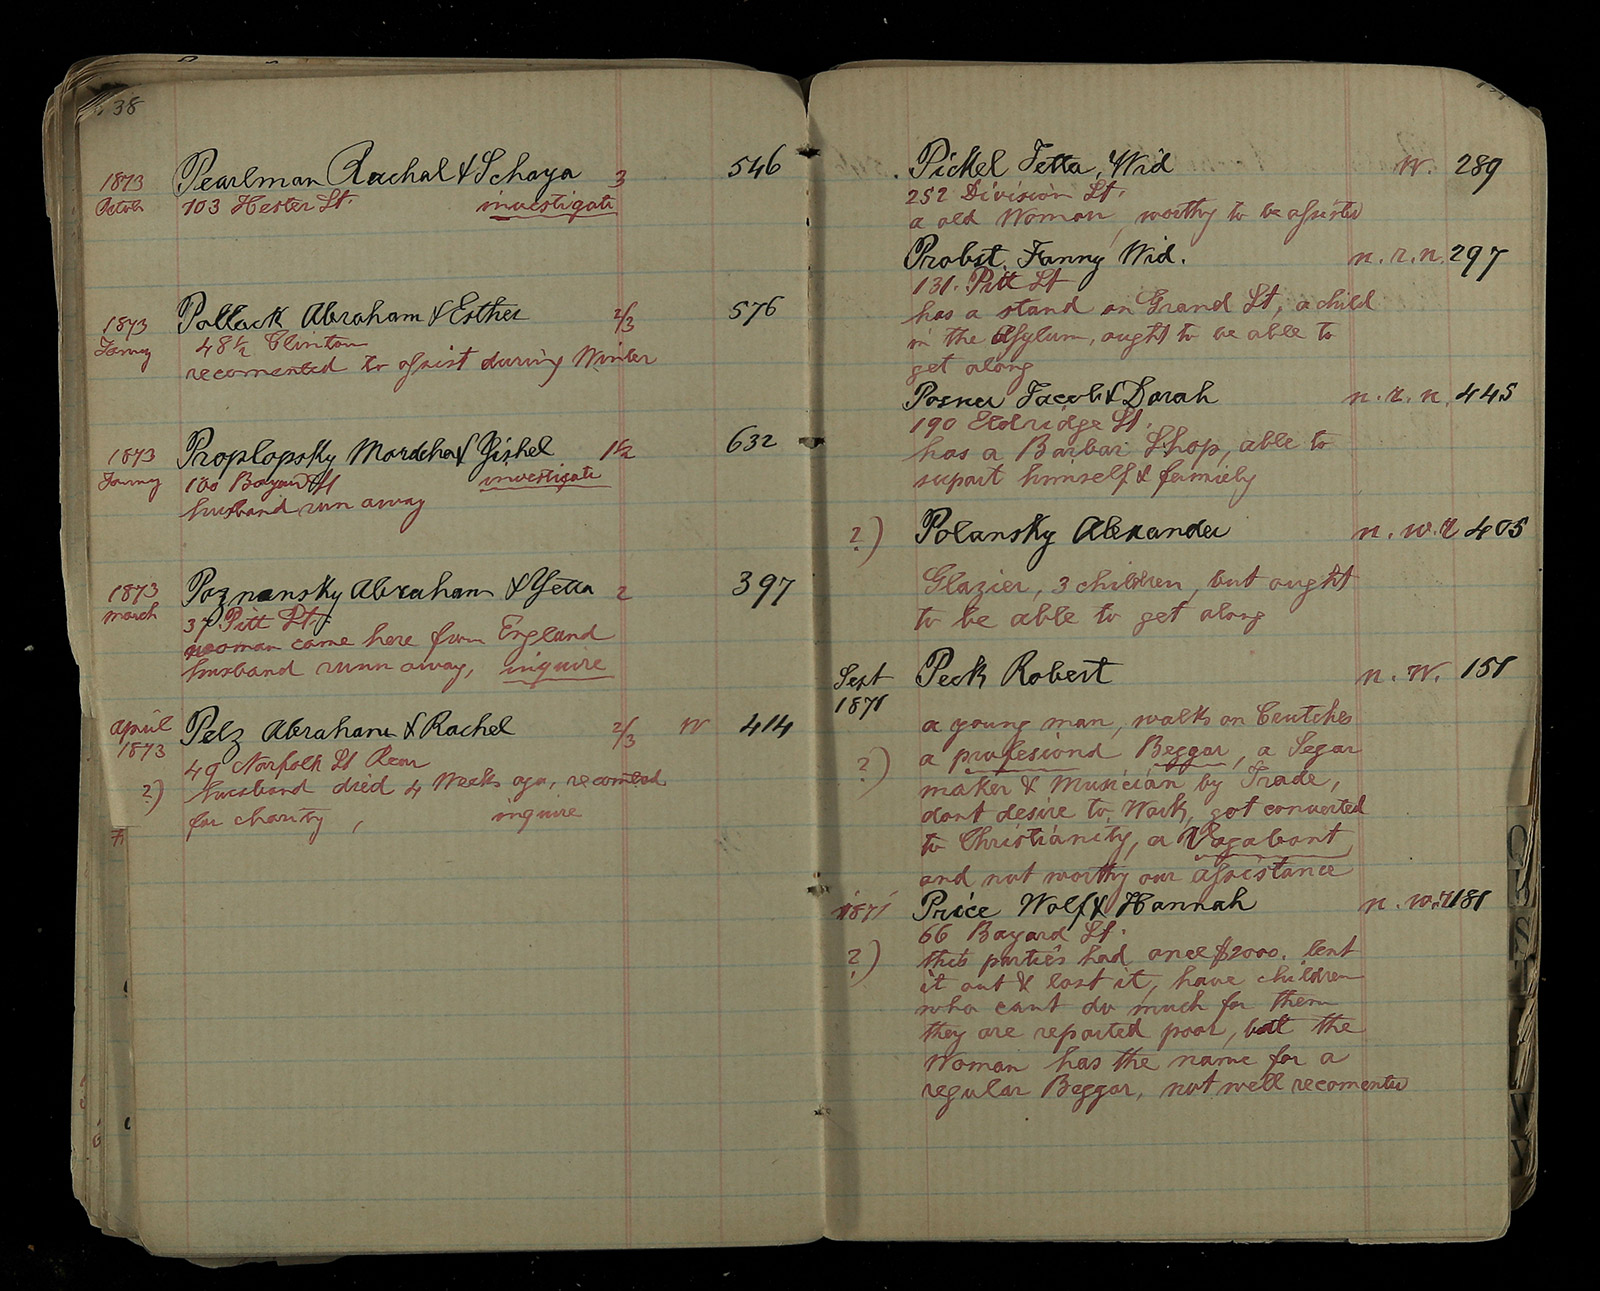 138
1873 Pearlman Rachal & Schaya 3 546
Octob 103 Hester St. investigate
1873 Pollack Abraham & Esther 2/3 576
Janny 48 1/2 Clinton
recomented to assist during Winter
1873 Proplopsky Mordcha & Zishel 1 1/2 632
Janny 100 Bayard St investigate
husband run away
1873 Poznansky Abraham & Yetta 2 397
march 37 Pitt St.
woman came here from England
husband runn away, inquire
April Pelz Abraham & Rachel 2/3 W 414
1873 49 Norfolk St Rear
?) husband died 4 Weeks ago, recomted
for charity, inquire
Pickel Jetta, Wid W. 289
252 Division St.
a old Woman, worthy to be assisted
Probst, Fanny Wid. n. r. n. 297
131. Pitt St
has a stand on Grand St, a child
in the Asylum, ought to be able to
get along
Posner Jacob & Dorah n. r. n. 445
190 Eldridge St.
has a Barbar Shop, able to
suport himself & famiely
?) Polansky Alexander n. w. r 405
Glazier, 3 children, but ought
to be able to get along
Sept Peck Robert n. W. 151
1871
a young man, walks on Crutches
?) a profesional Beggar, a Segar
maker & Musician by Trade,
dont desire to Work, got converted
to Christianity, a Vagabont
and not worthy our assistance
1871 Price Wolf & Hannah n. w. r 181
66 Bayard St.
?) this parties had once $2000. lent
it out & lost it, have children
who cant do much for them
they are reported poor, but the
Woman has the name for a
regular Beggar, not well recomented
Q
S
T
W
Y